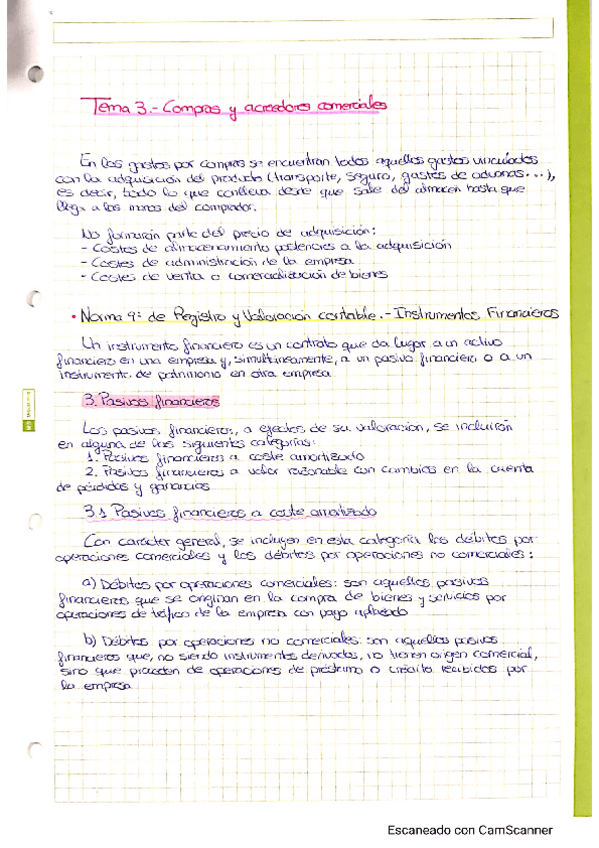 Tema 3.- Compras y acreedores comerciales
En los gastos por compras se encuentran todos aquellos gastos vinculados
con la adquisición del producto (transporte, seguro, gastos de aduanas...),
es decir, todo lo que conlleva desde que sale del almacén hasta que
llega a las manos del comprador.
No formarán parte del precio de adquisición:
- Costes de almacenamiento posteriores a la adquisición
- Costes de administración de la empresa
- Costes de venta o comercialización de bienes
• Norma 9ª de Registro y Valoración contable.- Instrumentos Financieros
Un instrumento financiero es un contrato que da lugar a un activo
financiero en una empresa y, simultáneamente, a un pasivo financiero o a un
instrumento de patrimonio en otra empresa
3. Pasivos financieros
Los pasivos financieros, a efectos de su valoración, se incluirán
en alguna de las siguientes categorías:
1. Pasivos financieros a coste amortizado
2. Pasivos financieros a valor razonable con cambios en la cuenta
de pérdidas y ganancias
3.1 Pasivos financieros a coste amortizado
Con carácter general, se incluyen en esta categoría los débitos por
operaciones comerciales y los débitos por operaciones no comerciales:
a) Débitos por operaciones comerciales: son aquellos pasivos
financieros que se originan en la compra de bienes y servicios por
operaciones de tráfico de la empresa con pago aplazado
b) Débitos por operaciones no comerciales: son aquellos pasivos
financieros que, no siendo instrumentos derivados, no tienen origen comercial,
sino que proceden de operaciones de préstamo o crédito recibidos por
la empresa
Escaneado con CamScanner